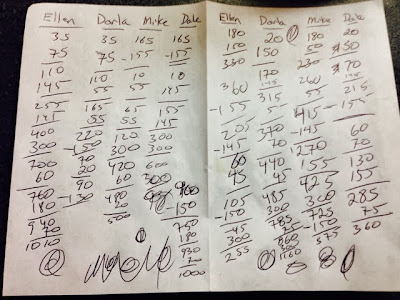 Ellen Darla Mike Dale
35 35 165 165
75 75 -155 -155
110 110 10 10
145 55 55 145
255 165 65 155
145 55 55 145
400 220 120 300
300 -150 300 300
700 70 420 600
60 20 60 300
760 90 480 900
180 -130 20 -150
940 500 750
70 180
1010 930
1000
Ellen Darla Mike Dale
180 20 180 20
150 150 50 50
330 170 230 70
145 145
360 315 260 215
-155 55 -155
205 370 415 60
-145 70 -145 70
60 440 270 130
45 45 155 155
105 485 425 285
-150 300 300 75
-45 785 725 360
300 75 -150
255 860 575
300
1160